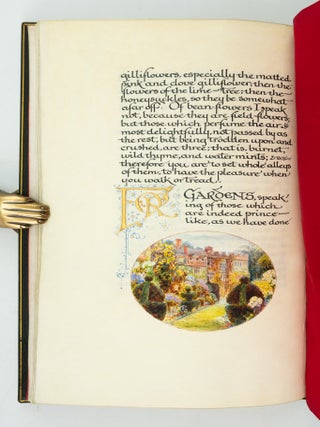 gilliflowers, especially the matted
pink and clove gilliflower; then the
flowers of the lime-tree; then the
honeysuckles, so they be somewhat
afar off. Of bean flowers I speak
not, because they are field-flowers;
but those which perfume the air
most delightfully, not passed by as
the rest, but being trodden upon and
crushed, are three; that is, burnet,
wild thyme, and water mints;
therefore you are to set whole alleys
of them, to have the pleasure when
you walk or tread.
FOR GARDENS, speak-
ing of those which
are indeed prince-
like, as we have done